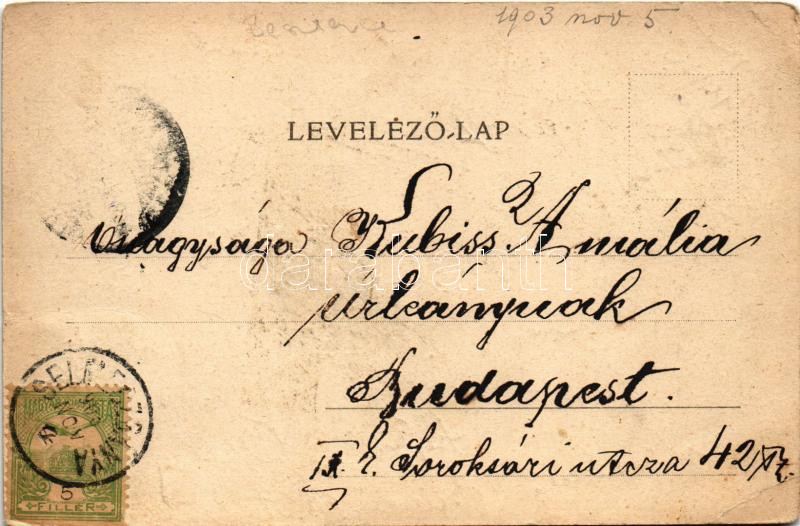 1903 nov. 5
LEVELEZŐ-LAP
Őnagysága Kubiss Amália
úrleánynak
Budapest.
IX. k. Soroksári utcza 42 sz.
darabanth
5
FILLÉR